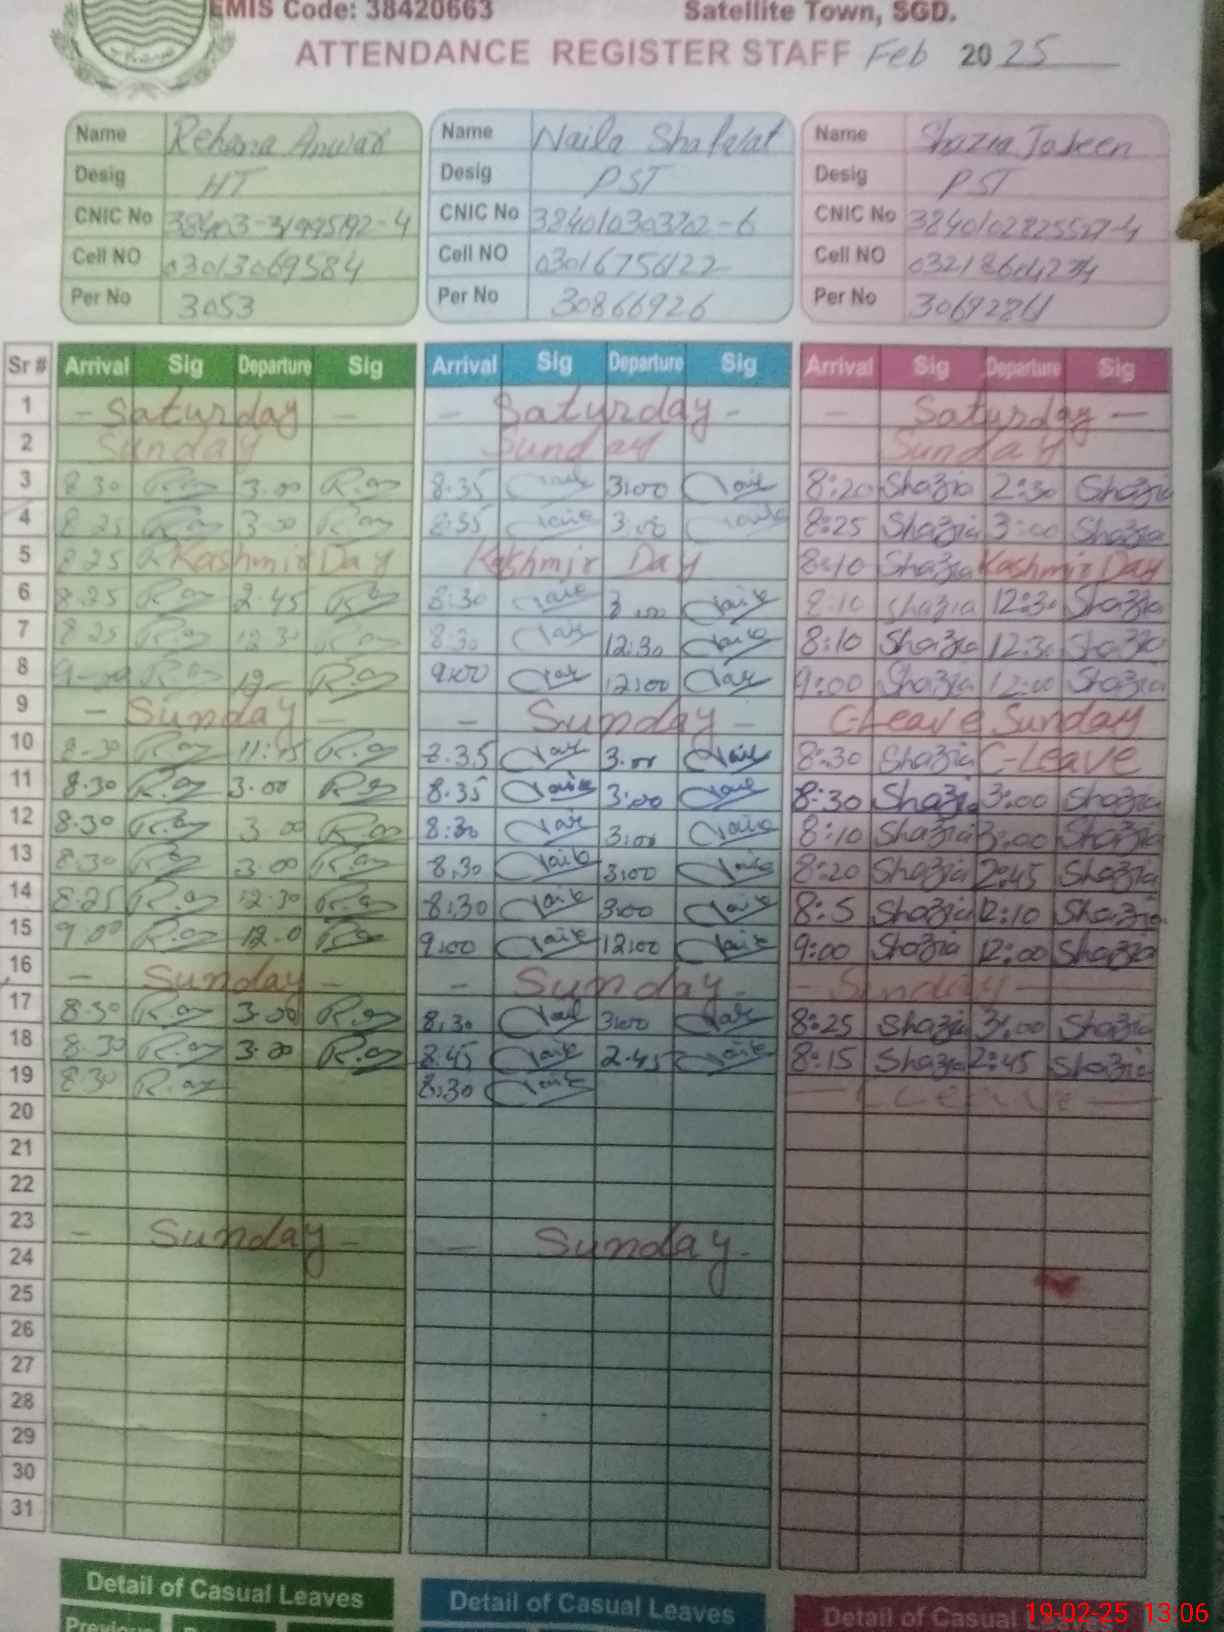 EMIS Code: 38420663 Satellite Town, SGD.
ATTENDANCE REGISTER STAFF Feb 2025
Name Rehana Anwar Name Naila Shafalat Name Shazia Jabeen
Desig HT Desig PST Desig PST
CNIC No CNIC No 38401030 CNIC No
Cell NO 03013069584 Cell NO 03016756122 Cell NO
Per No 3053 Per No 30866926 Per No
Sr # Arrival Sig Departure Sig Arrival Sig Departure Sig Arrival Sig Departure Sig
1 - Saturday - - Saturday - - Saturday -
2 Sunday Sunday Sunday
3 8.30 R.an 3.00 R.an 8.35 Naila 3:00 Naila 8:20 Shazia 2:30 Shazia
4 8.25 R.an 3.00 R.an 8:35 Naila 3:00 Naila 8:25 Shazia 3:00 Shazia
5 8.25 R Kashmir Day Kashmir Day 8:10 Shazia Kashmir Day
6 8.25 R.an 2.45 R.an 8:30 Naila 3:00 Naila 8:10 Shazia 12:30 Shazia
7 8.25 R.an 12.30 R.an 8:30 Naila 12:30 Naila 8:10 Shazia 12:30 Shazia
8 9-00 R.an 12- R.an 9:00 Naila 12:00 Naila 9:00 Shazia 12:00 Shazia
9 - Sunday - - Sunday - C-Leave Sunday
10 8-30 R.an 11:45 R.an 8.35 Naila 3.00 Naila 8:30 Shazia C-Leave
11 8.30 R.an 3.00 R.an 8:35 Naila 3:00 Naila 8:30 Shazia 3:00 Shazia
12 8.30 R.an 3.00 R.an 8:30 Naila 3:00 Naila 8:10 Shazia 3:00 Shazia
13 8.30 R.an 3.00 R.an 8.30 Naila 3:00 Naila 8:20 Shazia 2:45 Shazia
14 8.25 R.an 12.30 R.an 8:30 Naila 3:00 Naila 8:5 Shazia 12:10 Shazia
15 9.00 R.an 12.0 R.an 9:00 Naila 12:00 Naila 9:00 Shazia 12:00 Shazia
16 - Sunday - - Sunday - - Sunday -
17 8.30 R.an 3.00 R.an 8.30 Naila 3:00 Naila 8:25 Shazia 3:00 Shazia
18 8.30 R.an 3.00 R.an 8:45 Naila 2.45 Naila 8:15 Shazia 2:45 Shazia
19 8.30 R.an 8:30 Naila - C Leave -
20
21
22
23 - Sunday - - Sunday -
24
25
26
27
28
29
30
31
Detail of Casual Leaves Detail of Casual Leaves Detail of Casual Leaves
Previous
19-02-25 13:06